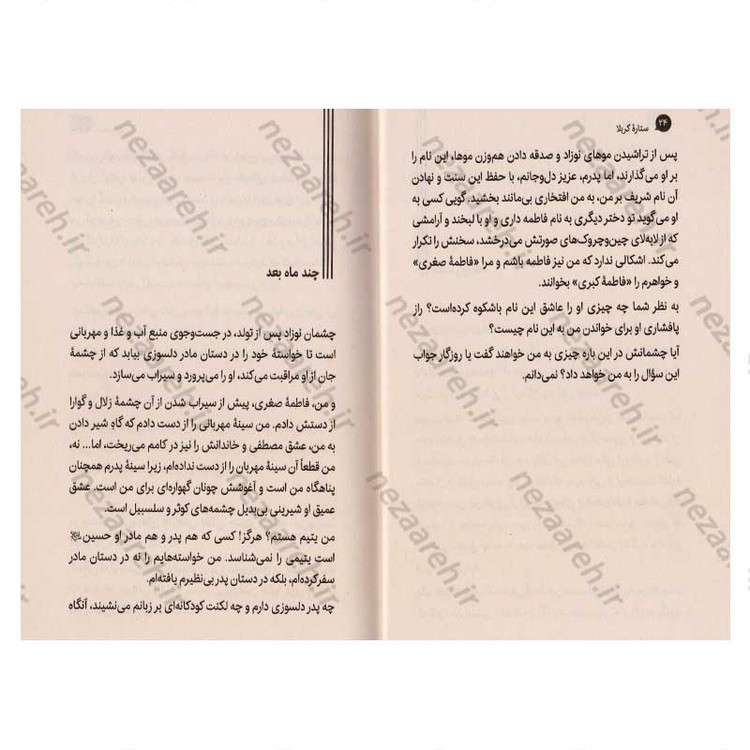 ۲۴ ستارهٔ کربلا
پس از تراشیدن موهای نوزاد و صدقه دادن هم‌وزن موها، این نام را
بر او می‌گذارند، اما پدرم، عزیز دل‌وجانم، با حفظ این سنت و نهادن
آن نام شریف بر من، به من افتخاری بی‌مانند بخشید. گویی کسی به
او می‌گوید تو دختر دیگری به نام فاطمه داری و او با لبخند و آرامشی
که از لابه‌لای چین‌وچروک‌های صورتش می‌درخشد، سخنش را تکرار
می‌کند. اشکالی ندارد که من نیز فاطمه باشم و مرا «فاطمهٔ صغری»
و خواهرم را «فاطمهٔ کبری» بخوانند.
به نظر شما چه چیزی او را عاشق این نام باشکوه کرده‌است؟ راز
پافشاری او برای خواندن من به این نام چیست؟
آیا چشمانش در این باره چیزی به من خواهند گفت یا روزگار جواب
این سؤال را به من خواهد داد؟ نمی‌دانم.
چند ماه بعد
چشمان نوزاد پس از تولد، در جست‌وجوی منبع آب و غذا و مهربانی
است تا خواستهٔ خود را در دستان مادر دلسوزی بیابد که از چشمهٔ
جان از او مراقبت می‌کند، او را می‌پرورد و سیراب می‌سازد.
و من، فاطمهٔ صغری، پیش از سیراب شدن از آن چشمهٔ زلال و گوارا
از دستش دادم. من سینهٔ مهربانی را از دست دادم که گاهِ شیر دادن
به من، عشق مصطفی و خاندانش را نیز در کامم می‌ریخت، اما... نه،
من قطعاً آن سینهٔ مهربان را از دست نداده‌ام، زیرا سینهٔ پدرم همچنان
پناهگاه من است و آغوشش چونان گهواره‌ای برای من است. عشق
عمیق او شیرینی بی‌بدیل چشمه‌های کوثر و سلسبیل است.
من یتیم هستم؟ هرگز! کسی که هم پدر و هم مادر او حسین
است یتیمی را نمی‌شناسد. من خواسته‌هایم را نه در دستان مادر
سفرکرده‌ام، بلکه در دستان پدر بی‌نظیرم یافته‌ام.
چه پدر دلسوزی دارم و چه لکنت کودکانه‌ای بر زبانم می‌نشیند، آنگاه
nezaareh.ir